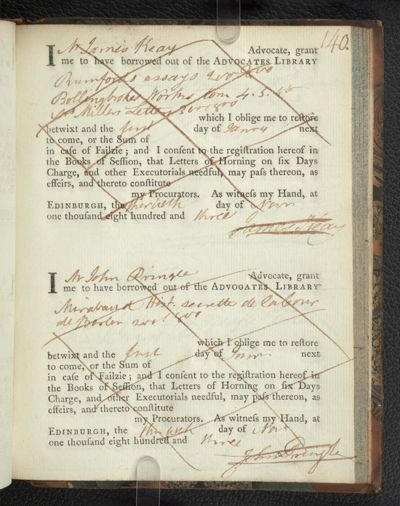 140.
I Mr James Keay Advocate, grant
me to have borrowed out of the ADVOCATES LIBRARY
Rumfords essays
Bollingbrokes Works tom 4. 5.
Millers Letters
which I oblige me to restore
betwixt and the first day of next
to come, or the Sum of
in case of Failzie; and I consent to the registration hereof in
the Books of Session, that Letters of Horning on six Days
Charge, and other Executorials needful, may pass thereon, as
effeirs, and thereto constitute
my Procurators. As witness my Hand, at
EDINBURGH, the thirtieth day of Novr
one thousand eight hundred and three
James Keay
I Mr John Pringle Advocate, grant
me to have borrowed out of the ADVOGATES LIBRARY
Mirabaud Hist. secrette de la Cour
de Berlin
which I oblige me to restore
betwixt and the first day of next
to come, or the Sum of
in case of Failzie; and I consent to the registration hereof in
the Books of Session, that Letters of Horning on six Days
Charge, and other Executorials needful, may pass thereon, as
effeirs, and thereto constitute
my Procurators. As witness my Hand, at
EDINBURGH, the day of Novr
one thousand eight hundred and three
John Pringle